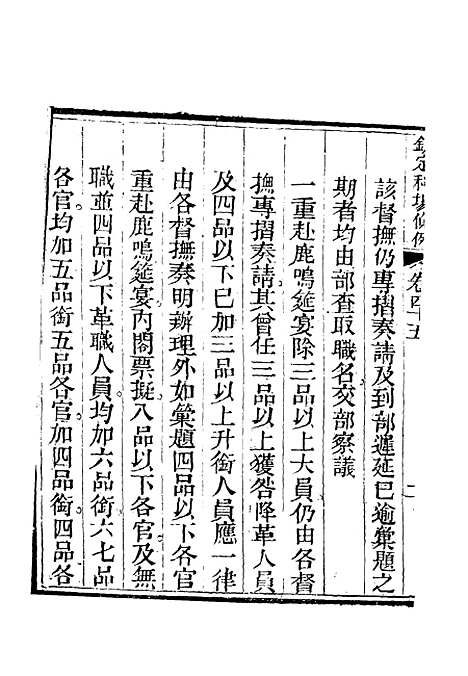 欽定科場條例 卷四十五 二
該督撫仍專摺奏請及到部遲延已逾彙題之
期者均由部查取職名交部察議
一重赴鹿鳴筵宴除三品以上大員仍由各督
撫專摺奏請其曾任三品以上獲咎降革人員
及四品以下已加三品以上升銜人員應一律
由各督撫奏明辦理外如彙題四品以下各官
重赴鹿鳴筵宴內閣票擬八品以下各官及無
職並四品以下革職人員均加六品銜六七品
各官均加五品銜五品各官加四品銜四品各